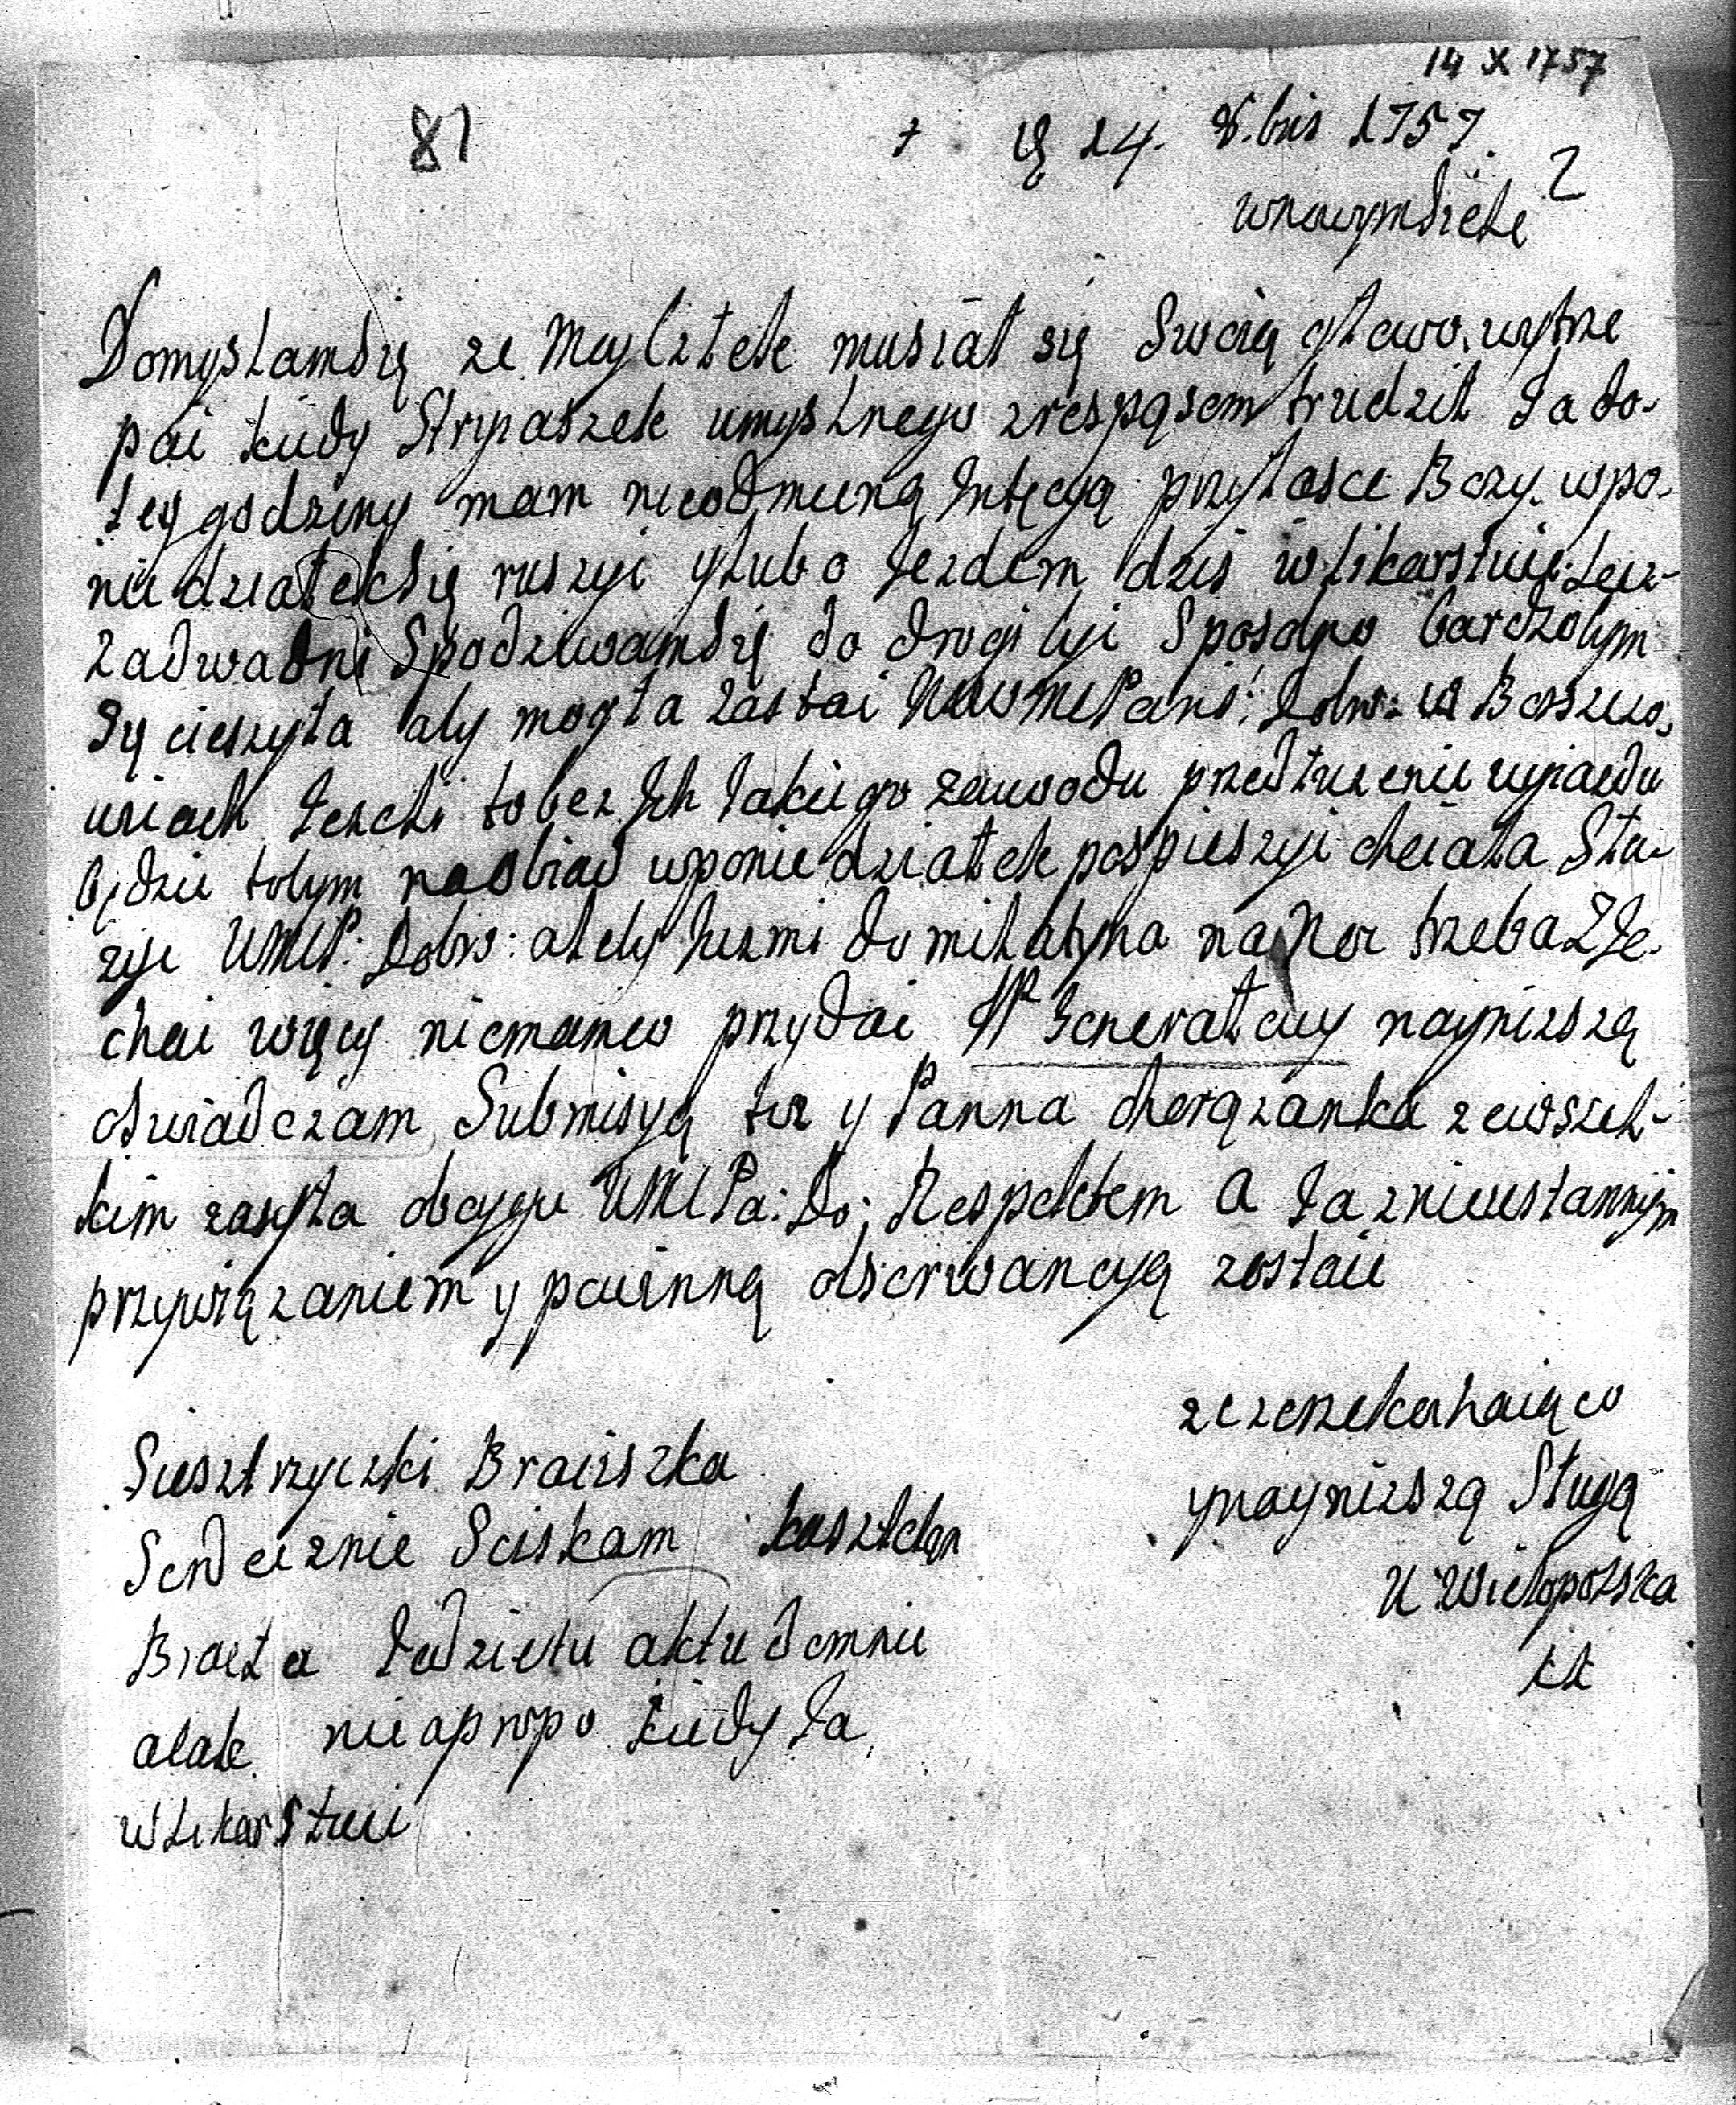 14 X 1757
81
+ 14. 8.bris 1757.
2
wnowymSiele
DomyslamSię ze Myslztek musiał się Swoią głowo wytrze
pai kiedy Stryiaszek umyslnego zrespąsem trudził Ja do
tey godziny mam nieodmieną Intęcyą przyłasce Bozy wpo
niedziałekSię ruszyc y lubo Jezdem dzis wlikarstwie Lecz
zadwadni SpodziwamSię do drogi byc Sposobno bardzobym
Się cieszyła aby mogła zastai Dobr: w
uriach Jezeli tobez Ich Jakiego zawodu przedłuzeniu wyiazdu
będzie tobym naobiad wponiedziałek pospieszyc chciała Słu
zyc UMCP: Dobr: ateby Juzmi do miłatyna na Noc trzeba ZJe
chac więcy niemamco przydai JP Generałowy nayniszą
oswiadczam Submisyą toz y Panna chorązanka zewszel
kim zasyła obcygu UMCPa: Do: Respektem a Ja znieustannym
przywiązaniem y powinną obserwancyą zostaie
zezcrzekochaiąco
ynaynizszą Sługą
U Wielopolska
Siesztrzyczki Braciszka
Serdecznie Sciskam kasztelan
Braeła Jedzietu aktudemnie
alale nieapropo kiedy Ja
wLikarstwie